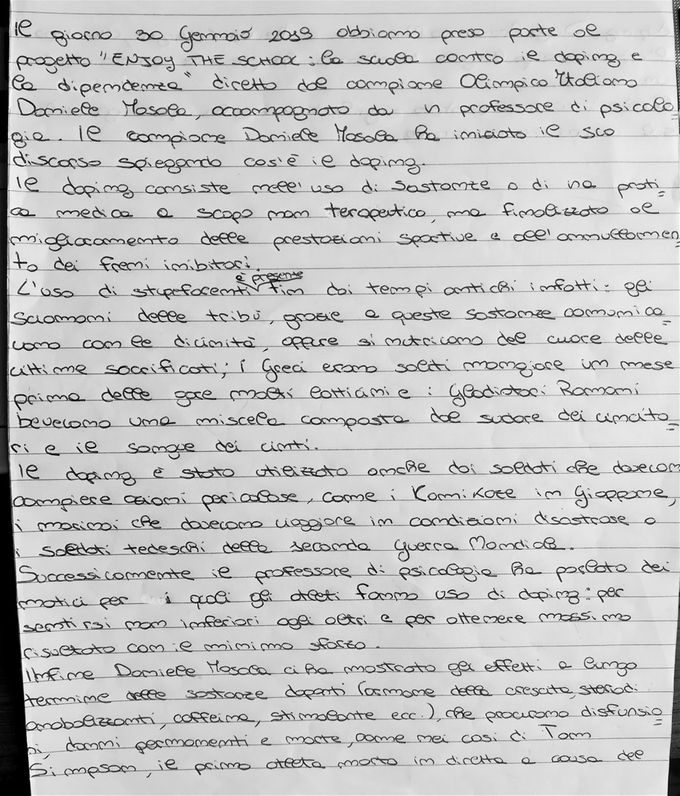 Il giorno 30 Gennaio 2019 abbiamo preso parte al
progetto "ENJOY THE SCHOOL: la scuola contro il doping e
la dipendenza" diretto dal campione Olimpico Italiano
Daniele Masala, accompagnato da un professore di psicolo
gia. Il campione Daniele Masala ha iniziato il suo
discorso spiegando cos'è il doping.
Il doping consiste nell'uso di sostanze o di una prati=
ca medica a scopo non terapeutico, ma finalizzato al
miglioramento delle prestazioni sportive e all'annullamen
to dei freni inibitori.
è presente
L'uso di stupefacenti fin dai tempi antichi infatti: gli
sciamani delle tribù, grazie a queste sostanze comunica
vano con le divinità, oppure si nutrivano del cuore delle
vittime sacrificati; i Greci erano soliti mangiare un mese
prima delle gare molti latticini e i Gladiatori Romani
bevevano una miscela composta dal sudore dei vincito=
ri e il sangue dei vinti.
Il doping è stato utilizzato anche dai soldati che dovevan
compiere azioni pericolose, come i Kamikaze in Giappone,
i marinai che dovevano viaggiare in condizioni disastrose o
i soldati tedeschi della seconda Guerra Mondiale.
Successivamente il professore di psicologia ha parlato dei
motivi per i quali gli atleti fanno uso di doping: per
sentirsi non inferiori agli altri e per ottenere massimo
risultato con il minimo sforzo.
Infine Daniele Masala ci ha mostrato gli effetti a lungo
termine delle sostanze dopanti (ormone della crescita, steroidi
anabolizzanti, caffeina, stimolante ecc.), che procurano disfunzio=
ni, danni permanenti e morte, come nei casi di Tom
Simpson, il primo atleta morto in diretta a causa del